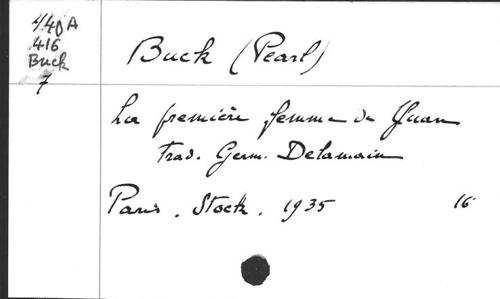 440A
416
Buck
7
Buck (Pearl)
La première femme de Yuan
trad. Germ. Delamain
Paris. Stock. 1935 16